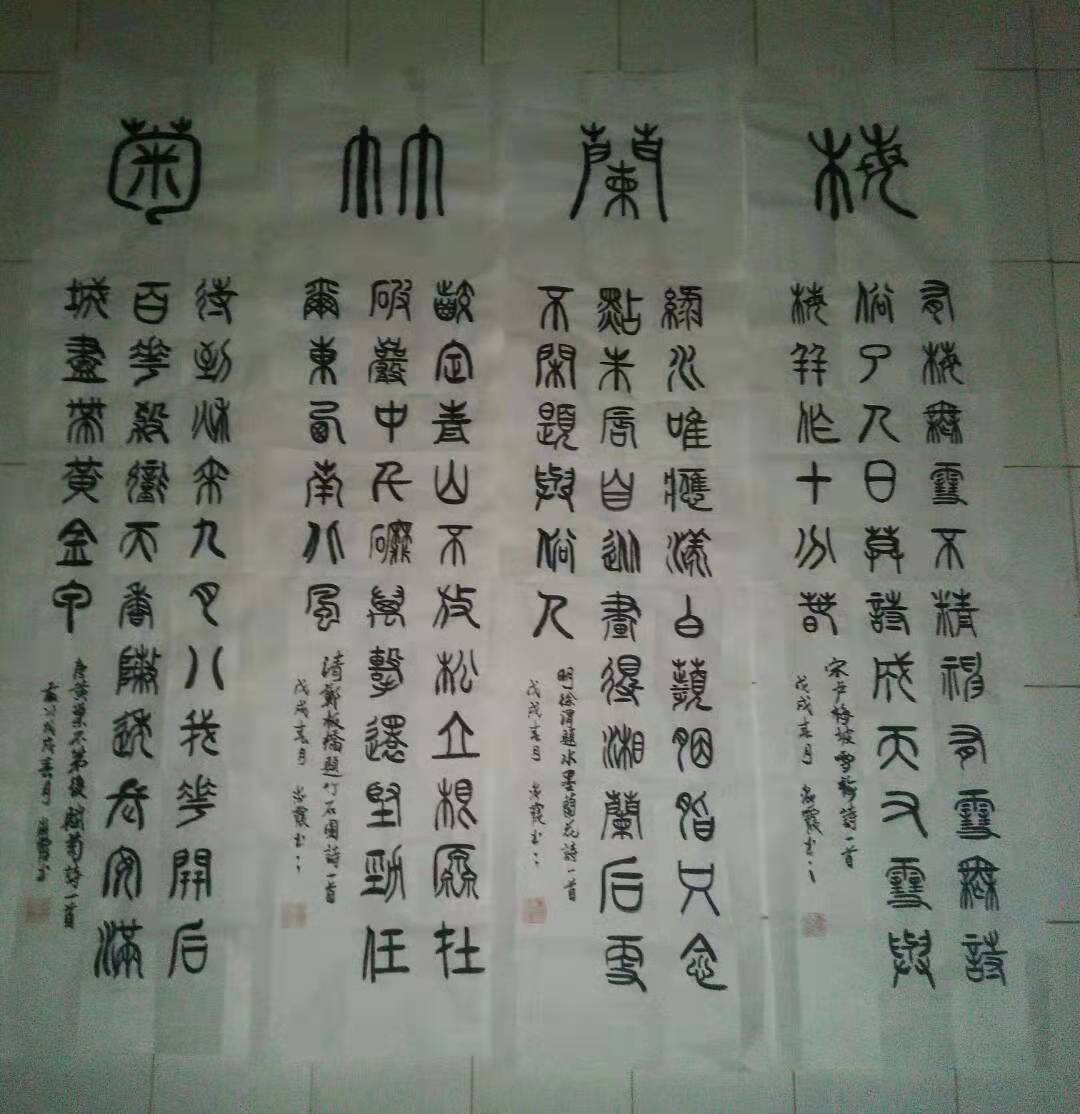 梅
有梅無雪不精神有雪無詩
俗了人日暮詩成天又雪與
梅并作十分春
宋卢梅坡雪梅詩一首
戊戌春月
蘭
綠水唯應漾白蘋胭脂只念
點朱唇自從畫得湘蘭后更
不閑題與俗人
明徐渭題水墨蘭花詩一首
戊戌春月
竹
齩定青山不放松立根原在
破巖中千磨萬擊還堅勁任
爾東西南北風
清鄭板橋題竹石图詩一首
戊戌春月
菊
待到秋來九月八我花開后
百花殺衝天香陣透長安滿
城盡帶黃金甲
唐黄巢不第後賦菊詩一首
戊戌春月